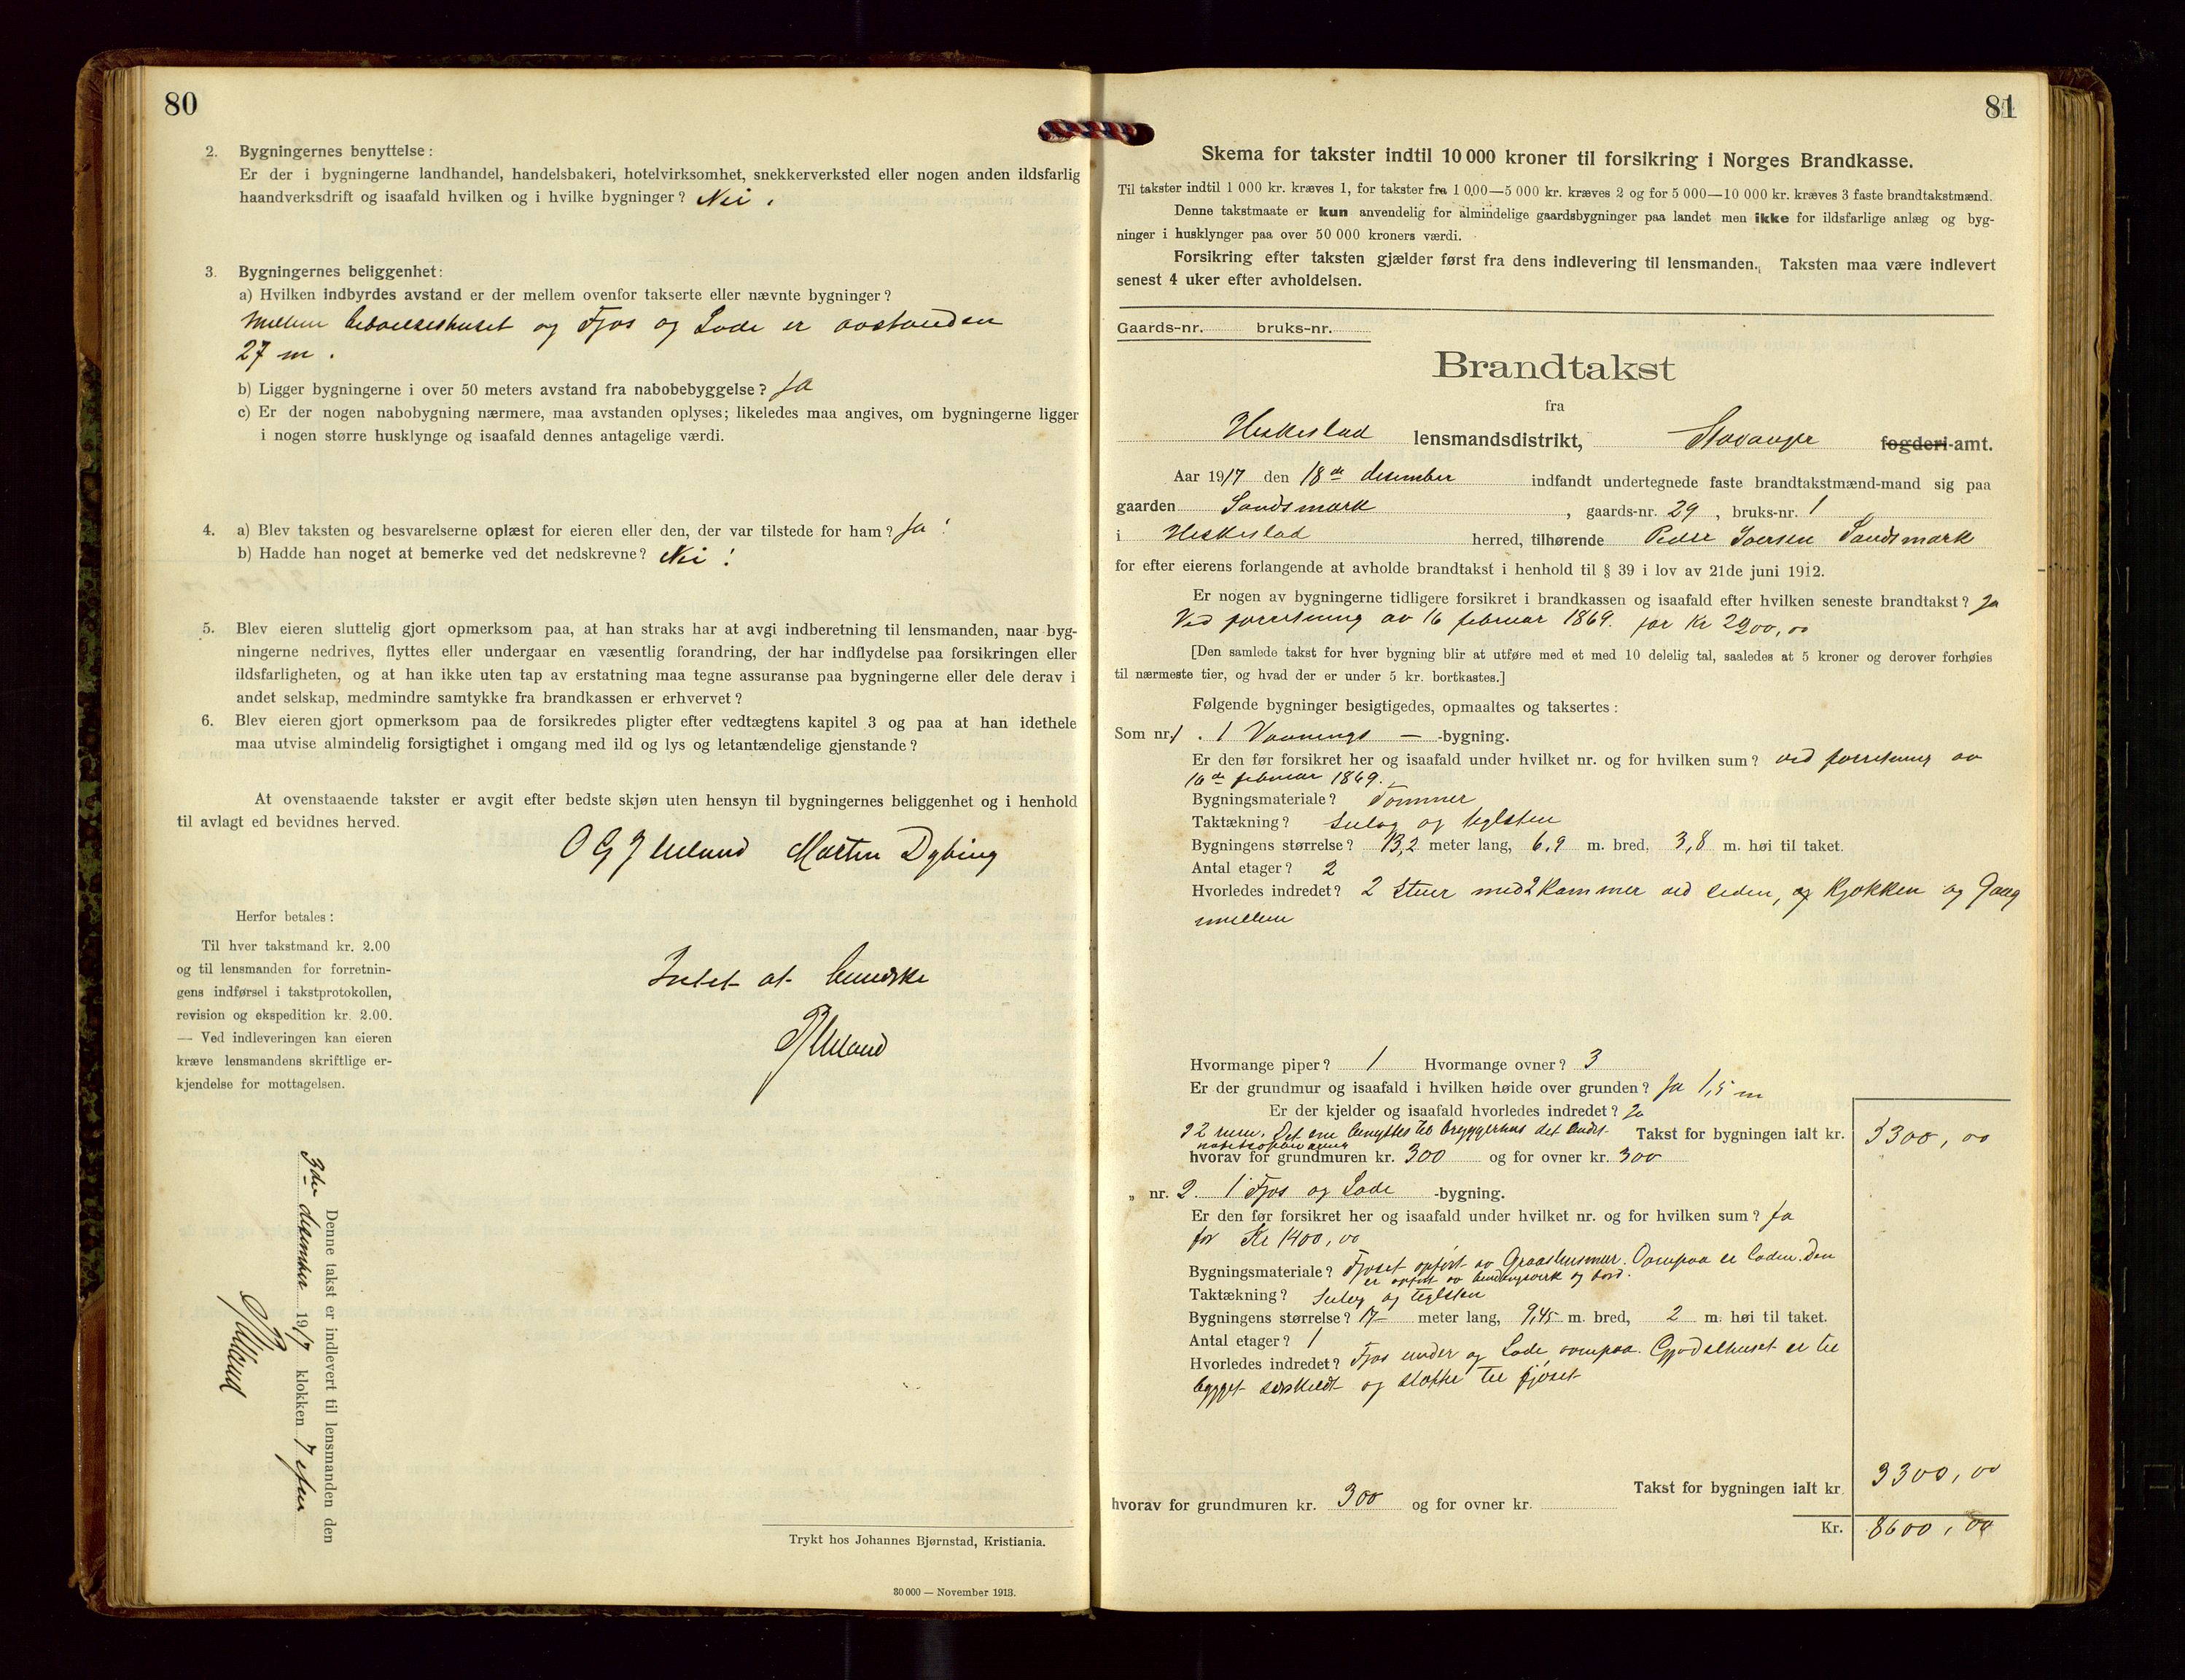 80
2. Bygningernes benyttelse:
Er der i bygningerne landhandel, handelsbakeri, hotelvirksomhet, snekkerverksted eller nogen anden ildsfarlig
haandverksdrift og isaafald hvilken og i hvilke bygninger? Nei.
3. Bygningernes beliggenhet:
a) Hvilken indbyrdes avstand er der mellem ovenfor takserte eller nævnte bygninger?
Mellem beboelseshuset og Fjos og Lade er avstanden
27 m.
b) Ligger bygningerne i over 50 meters avstand fra nabobebyggelse? Ja
c) Er der nogen nabobygning nærmere, maa avstanden oplyses; likeledes maa angives, om bygningerne ligger
i nogen større husklynge og isaafald dennes antagelige værdi.
4. a) Blev taksten og besvarelserne oplæst for eieren eller den, der var tilstede for ham? Ja!
b) Hadde han noget at bemerke ved det nedskrevne? Nei!
5. Blev eieren sluttelig gjort opmerksom paa, at han straks har at avgi indberetning til lensmanden, naar byg-
ningerne nedrives, flyttes eller undergaar en væsentlig forandring, der har indflydelse paa forsikringen eller
ildsfarligheten, og at han ikke uten tap av erstatning maa tegne assuranse paa bygningerne eller dele derav i
andet selskap, medmindre samtykke fra brandkassen er erhvervet?
6. Blev eieren gjort opmerksom paa de forsikredes pligter efter vedtægtens kapitel 3 og paa at han idethele
maa utvise almindelig forsigtighet i omgang med ild og lys og letantændelige gjenstande?
At ovenstaaende takster er avgit efter bedste skjøn uten hensyn til bygningernes beliggenhet og i henhold
til avlagt ed bevidnes herved.
O G Ueland Morten Dybing
Herfor betales:
Til hver takstmand kr. 2.00
og til lensmanden for forretnin-
gens indførsel i takstprotokollen,
revision og ekspedition kr. 2.00.
— Ved indleveringen kan eieren
kræve lensmandens skriftlige er-
kjendelse for mottagelsen.
Intet at bemerke
Ueland
Denne takst er indlevert til lensmanden den
3die desember 1917 klokken 7 efm
Ueland
Trykt hos Johannes Bjørnstad, Kristiania.
30 000 — November 1913.
81
Skema for takster indtil 10 000 kroner til forsikring i Norges Brandkasse.
Til takster indtil 1 000 kr. kræves 1, for takster fra 1 000—5 000 kr. kræves 2 og for 5 000—10 000 kr. kræves 3 faste brandtakstmænd.
Denne takstmaate er kun anvendelig for almindelige gaardsbygninger paa landet men ikke for ildsfarlige anlæg og byg-
ninger i husklynger paa over 50 000 kroners værdi.
Forsikring efter taksten gjælder først fra dens indlevering til lensmanden. Taksten maa være indlevert
senest 4 uker efter avholdelsen.
Gaards-nr. bruks-nr.
Brandtakst
fra
Heskestad lensmandsdistrikt, Stavanger fogderi-amt.
Aar 1917 den 18de desember indfandt undertegnede faste brandtakstmænd-mand sig paa
gaarden Sandsmark, gaards-nr. 29, bruks-nr. 1
i Heskestad herred, tilhørende Peder Iversen Sandsmark
for efter eierens forlangende at avholde brandtakst i henhold til § 39 i lov av 21de juni 1912.
Er nogen av bygningerne tidligere forsikret i brandkassen og isaafald efter hvilken seneste brandtakst? Ja
Ved forretning av 16 februar 1869. for Kr 2200,00
[Den samlede takst for hver bygning blir at utføre med et med 10 delelig tal, saaledes at 5 kroner og derover forhøies
til nærmeste tier, og hvad der er under 5 kr. bortkastes.]
Følgende bygninger besigtigedes, opmaaltes og taksertes:
Som nr. 1. 1 Vaanings — -bygning.
Er den før forsikret her og isaafald under hvilket nr. og for hvilken sum? ved forretning av
16de februar 1869.
Bygningsmateriale? Tømmer
Taktækning? Sulag og teglsten
Bygningens størrelse? 13,2 meter lang, 6,9 m. bred, 3,8 m. høi til taket.
Antal etager? 2
Hvorledes indredet? 2 Stuer med 2 Kammer ved siden, og Kjøkken og Gang
imellem
Hvormange piper? 1 Hvormange ovner? 3
Er der grundmur og isaafald i hvilken høide over grunden? Ja 1,5 m
Er der kjelder og isaafald hvorledes indredet? Ja
2 rum. Det ene benyttes til bryggerhus det andet Takst for bygningen ialt kr. 5300,00
hvorav for grundmuren kr. 300 og for ovner kr. 300
„ nr. 2. 1 Fjos og Lade -bygning.
Er den før forsikret her og isaafald under hvilket nr. og for hvilken sum? Ja
for Kr 1400,00
Bygningsmateriale? Fjoset opført av Graastensmur. Ovenpaa er laden. Den
er opført av bindingsverk og bord.
Taktækning? Sulag og teglsten
Bygningens størrelse? 17 meter lang, 9,45 m. bred, 2 m. høi til taket.
Antal etager? 1
Hvorledes indredet? Fjos under og Lade ovenpaa. Gjødselhuset er til
bygget særskildt og støtter til fjøset
Takst for bygningen ialt kr. 3300,00
hvorav for grundmuren kr. 300 og for ovner kr.
Kr. 8600,00